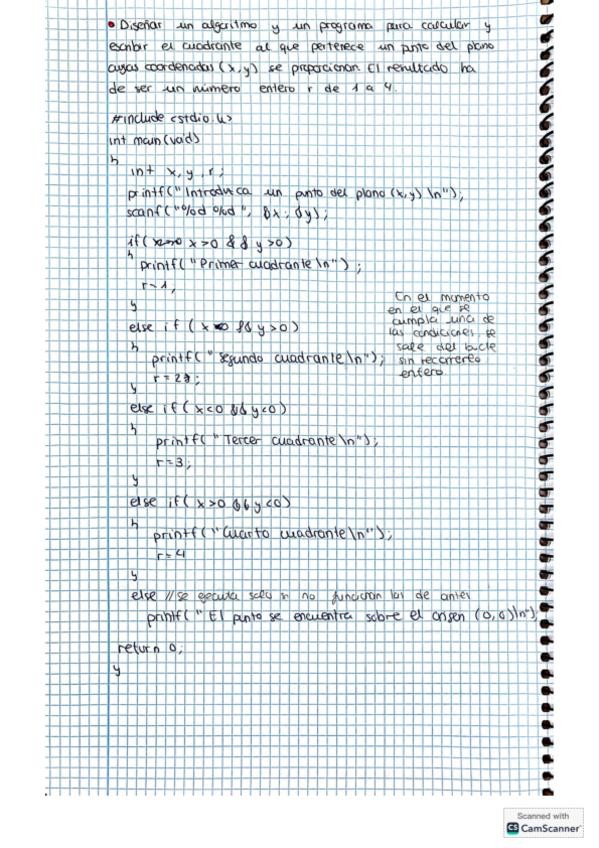 • Diseñar un algoritmo y un programa para calcular y
escribir el cuadrante al que pertenece un punto del plano
cuyas coordenadas (x,y) se proporcionan. El resultado ha
de ser un número entero r de 1 a 4.
#include <stdio.h>
int main(void)
{
int x, y, r;
printf("Introduzca un punto del plano (x,y) \n");
scanf("%d %d", &x, &y);
if( x>0 && y>0)
{
printf("Primer cuadrante \n");
r=1;
}
else if ( x<0 && y>0)
{
printf(" Segundo cuadrante \n");
r=2;
}
En el momento
en el que se
cumpla una de
las condiciones se
sale del bucle
sin recorrerlo
entero
else if( x<0 && y<0)
{
printf("Tercer cuadrante \n");
r=3;
}
else if( x>0 && y<0)
{
printf("Cuarto cuadrante \n");
r=4
}
else //se ejecuta solo si no funcionan las de antes
printf(" El punto se encuentra sobre el origen (0,0)\n");
return 0;
}
Scanned with
CS CamScanner